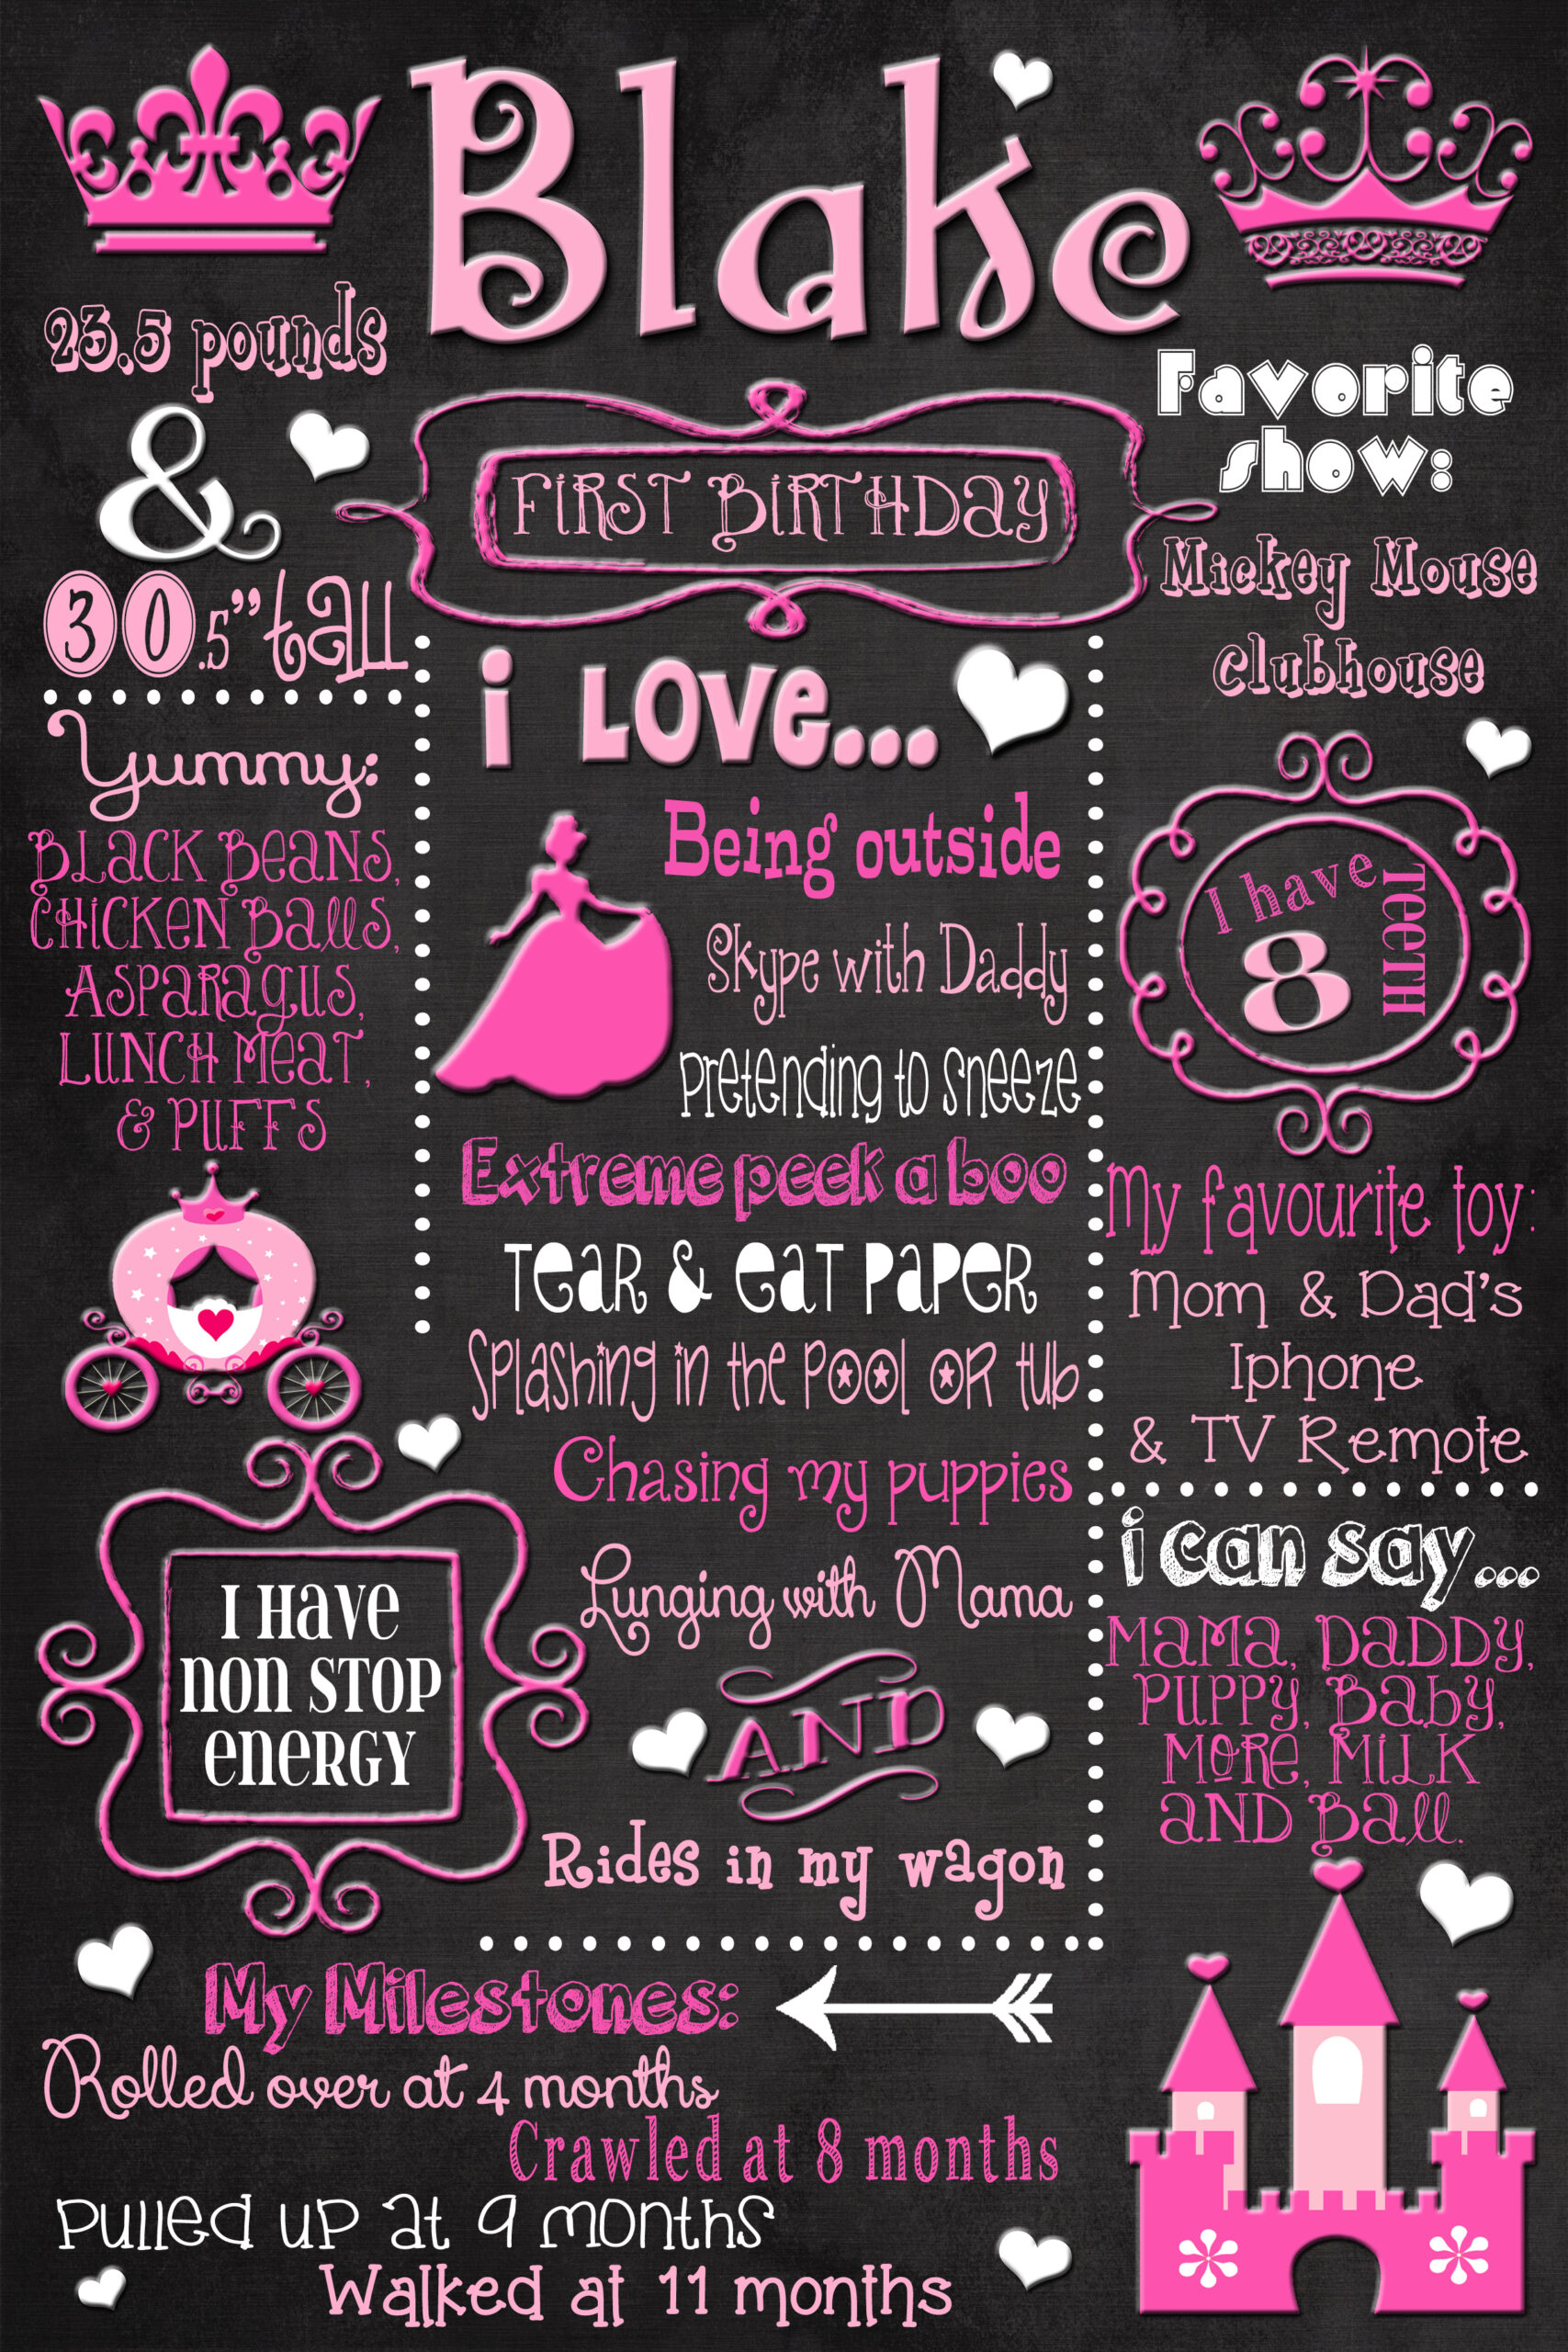 Blake
23.5 pounds
&
30.5" tall
FIRST BIRTHDAY
Favorite
show:
Mickey Mouse
Clubhouse
Yummy:
BLACK BEANS,
CHICKEN BALLS,
ASPARAGUS,
LUNCH MEAT,
& PUFFS
i LOVE...
Being outside
Skype with Daddy
pretending to sneeze
Extreme peek a boo
Tear & eat paper
Splashing in the pool or tub
Chasing my puppies
Lunging with Mama
AND
Rides in my wagon
I have
8
TEETH
My favourite toy:
Mom & Dad's
Iphone
& TV Remote
i can say...
MAMA, DADDY,
PUPPY, BABY,
MORE, MILK
AND BALL.
I Have
non stop
energy
My Milestones:
Rolled over at 4 months
Crawled at 8 months
pulled up at 9 months
Walked at 11 months